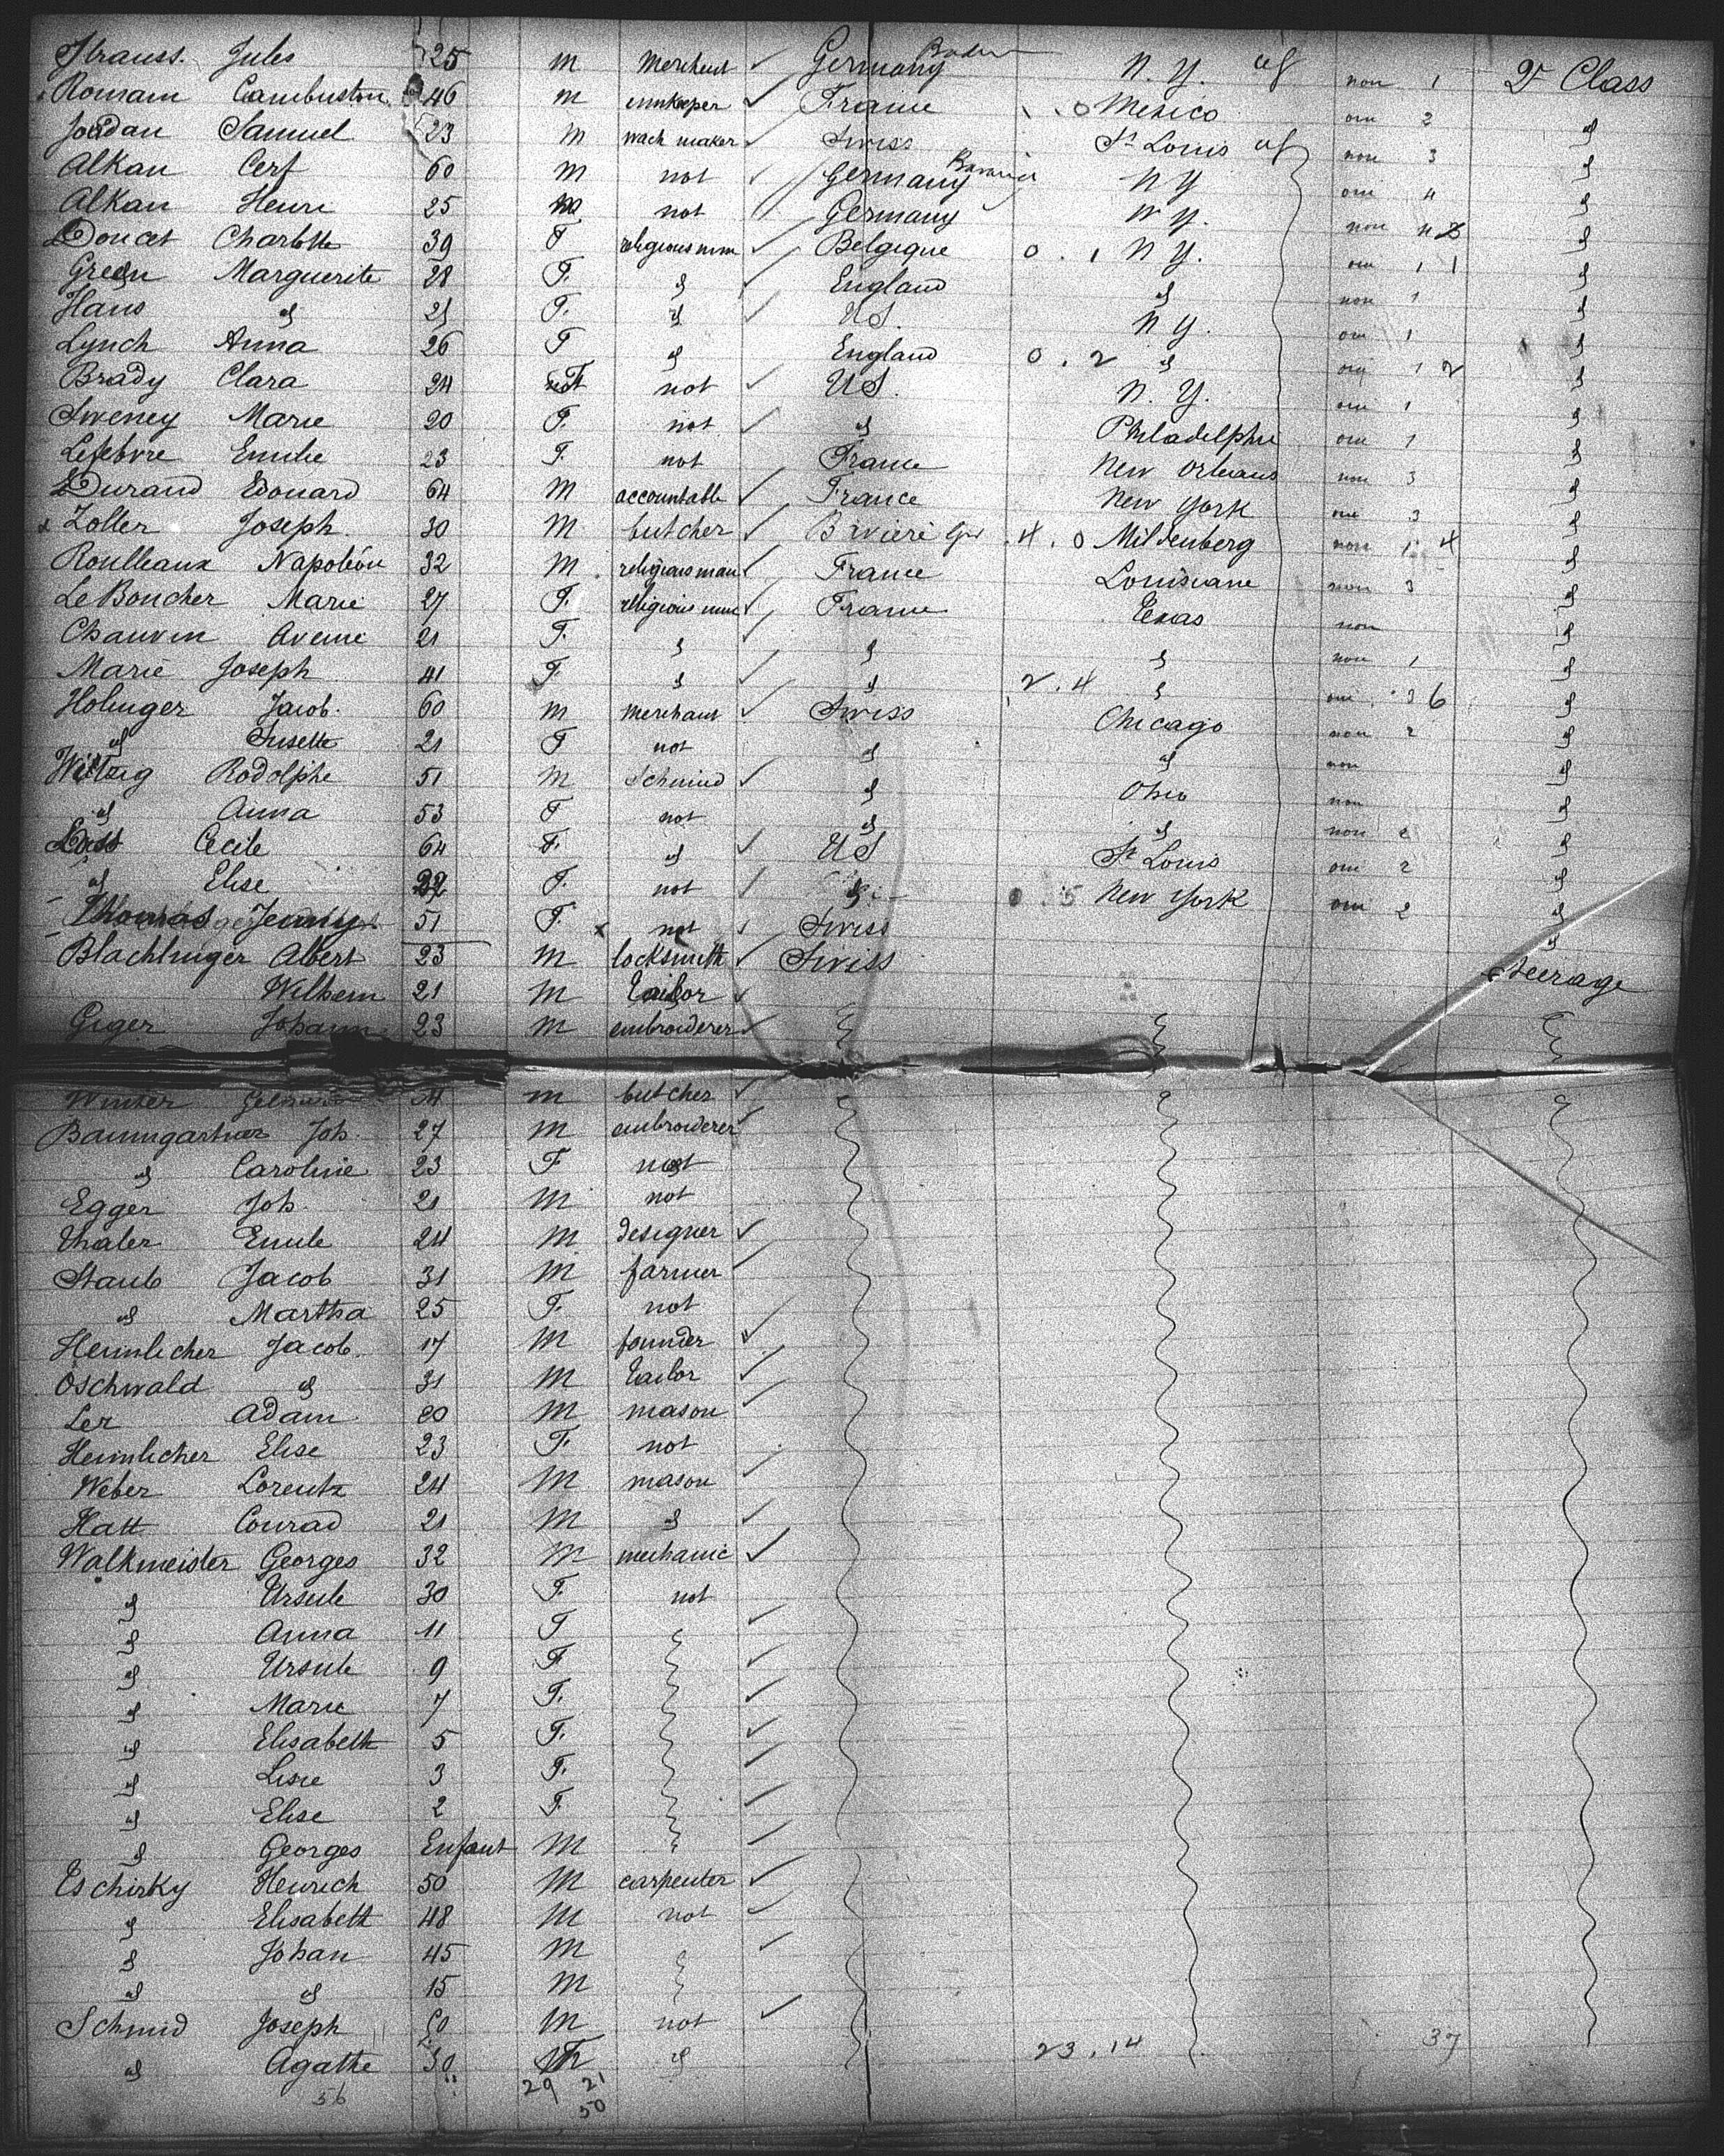 Strauss. Jules 25 m Merchant Germany Baden N. Y. non 1 2d Class
Romain Cambuston 46 m innkeeper France 0 Mexico oui 2
Jordan Samuel 23 M wach maker Swiss St Louis non 3
Alkan Cerf 60 m not Germany Bavaria N Y oui 4
Alkan Henri 25 m not Germany N Y. non 4
Doucet Charlotte 39 F religious nun Belgique 0 . 1 N Y. oui 1 1
Green Marguerite 28 F. " England " non 1
Hans " 21 F. " US. N Y. oui 1
Lynch Anna 26 F " England 0 . 2 " oui 1 2
Brady Clara 24 F not US. N. Y. oui 1
Sweney Marie 20 F. not " Philadelphie oui 1
Lefebvre Emilie 23 F. not France New Orleans non 3
Durand Edouard 64 M accountable France New York oui 3
x Zoller Joseph 30 M butcher 4 . 0 Miltenberg non 1 4
Roulleaux Napoléon 32 M. religious man France Louisiane non 3
Le Boucher Marie 27 F. religious nun France Texas non
Chauvin 21 F. " " " non 1
Marie Joseph 41 F. " " 2 . 4 " oui 3 6
Holinger Jacob. 60 m merchant Swiss Chicago non 2
" Susette 21 F not " " non
Rodolphe 51 m Schmied " Ohio non
" Anna 53 F not " " non 2
Cecile 64 F. " US St Louis oui 2
" Elise F. not " New York oui 2
Thomas Jenny 51 F. x not Swiss "
Blachlinger Albert 23 M locksmith Swiss Steerage
Wilhem 21 M Tailor
Giger Johann 23 m embroiderer
Winter m butcher
Baumgartner Joh. 27 M embroiderer
" Caroline 23 F not
Egger Joh. 21 M not
Thaler Emile 24 M designer
Staub Jacob 31 M farmer
" Martha 25 F. not
Heimlicher Jacob. 17 M founder
Oschwald " 31 M Tailor
Ler Adam 20 M mason
Heimlicher Elise 23 F. not
Weber Lorentz 24 M mason
Hatt Conrad 21 M "
Walkmeister Georges 32 M mechanic
" Ursule 30 F. not
" Anna 11 F
" Ursule 9 F
" Marie 7 F.
" Elisabeth 5 F.
" Lisie 3 F.
" Elise 2 F.
" Georges Enfant M
Tschirky Heinrich 50 M carpenter
" Elisabeth 48 M not
" Johan 45 M
" " 15 M
Schmid Joseph 60 M not
" Agathe 30 " 23 . 14 37
56 29 21
50